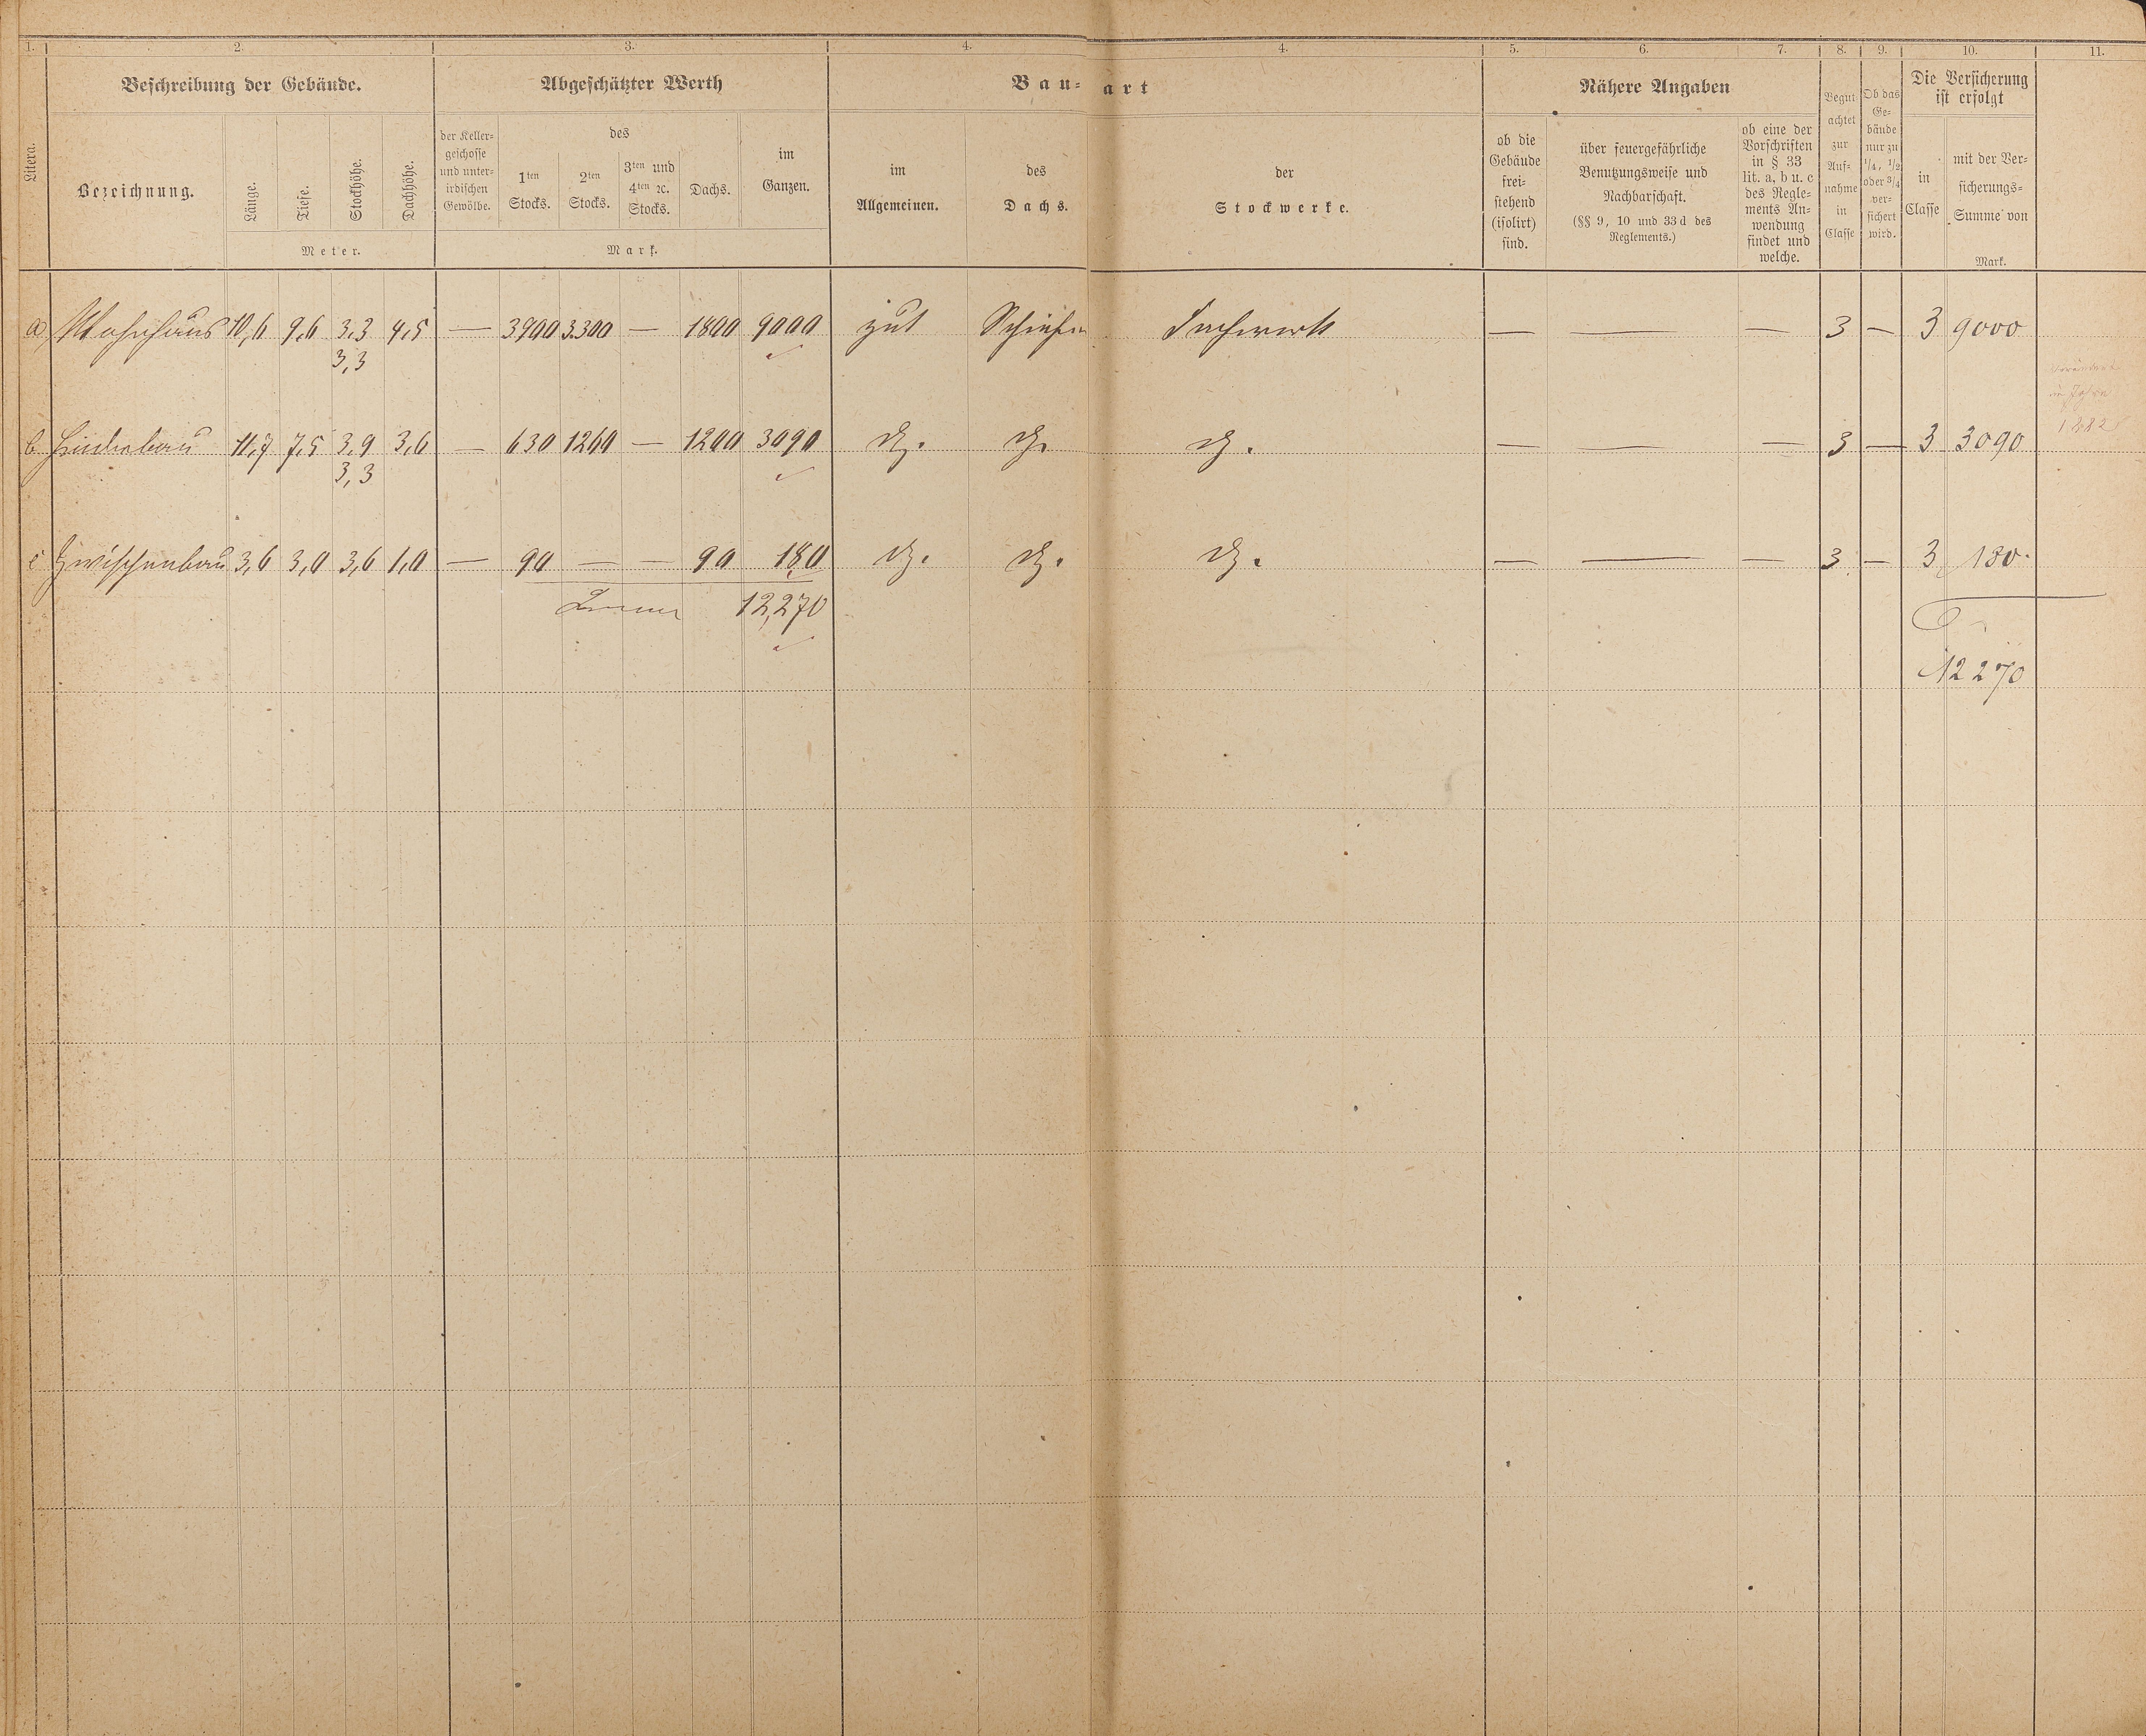 1. 2. 3. 4. 4. 5. 6. 7. 8. 9. 10. 11.
Littera.
Beschreibung der Gebäude.
Bezeichnung.
Länge.
Tiefe.
Stockhöhe.
Dachhöhe.
Meter.
Abgeschätzter Werth
der Keller-
geschosse
und unter-
irdischen
Gewölbe.
des
1ten
Stocks.
2ten
Stocks.
3ten und
4ten ꝛc.
Stocks.
Dachs.
im
Ganzen.
Mark.
Bau-art
im
Allgemeinen.
des
Dachs.
der
Stockwerke.
Nähere Angaben
ob die
Gebäude
frei-
stehend
(isolirt)
sind.
über feuergefährliche
Benutzungsweise und
Nachbarschaft.
(§§ 9, 10 und 33 d des
Reglements.)
ob eine der
Vorschriften
in § 33
lit. a, b u. c
des Regle-
ments An-
wendung
findet und
welche.
Begut-
achtet
zur
Auf-
nahme
in
Classe
Ob das
Ge-
bäude
nur zu
1/4, 1/2
oder 3/4
ver-
sichert
wird.
Die Versicherung
ist erfolgt
in
Classe
mit der Ver-
sicherungs-
Summe von
Mark.
a) Wohnhaus 10,6 9,6 3,3 4,5 — 3900 3300 — 1800 9000 gut Schiefer Fachwerk — — — 3 — 3 9000
3,3
b 11,7 7,5 3,9 3,6 — 630 1260 — 1200 3090 dg. dg. dg. — — — 3 — 3 3090
3,3
1882
c Zwischenbau 3,6 3,0 3,6 1,0 — 90 — — 90 180 dg. dg. dg. — — — 3 — 3 180.
Summe 12,270
12270